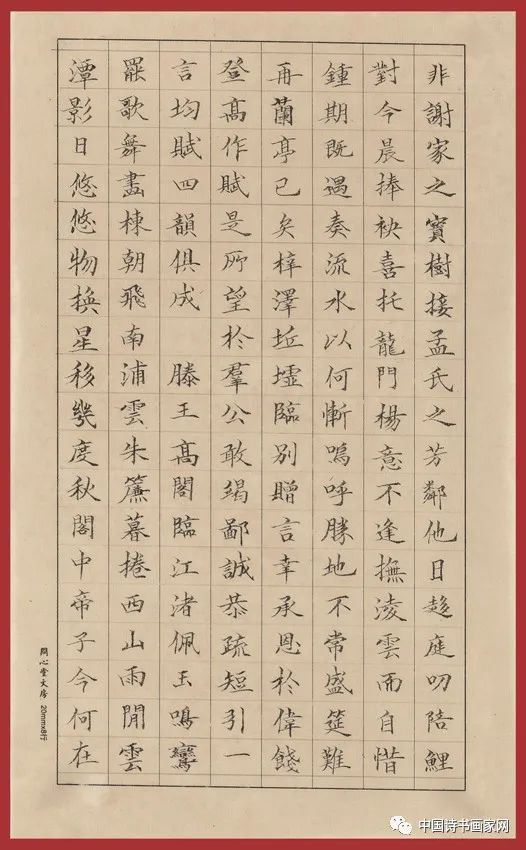 非謝家之寳樹接孟氏之芳鄰他日趍庭叨陪鯉
對今晨捧袂喜托龍門楊意不逢撫淩雲而自惜
鍾期既遇奏流水以何慚嗚呼勝地不常盛筵難
再蘭亭已矣梓澤坵墟臨別贈言幸承恩於偉餞
登髙作賦是所望於羣公敢竭鄙誠恭疏短引一
言均賦四韻俱成 滕王髙閣臨江渚佩玉鳴鸞
罷歌舞畵棟朝飛南浦雲朱簾暮捲西山雨閒雲
潭影日悠悠物換星移幾度秋閣中帝子今何在
心堂文房 20mmx8行
中国诗书画家网